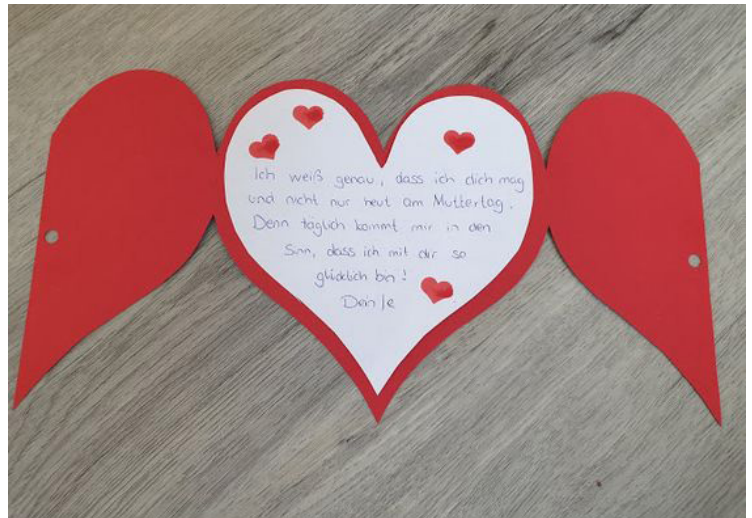 Ich weiß genau, dass ich dich mag
und nicht nur heut am Muttertag.
Denn täglich kommt mir in den
Sinn, dass ich mit dir so
glücklich bin!
Dein/e